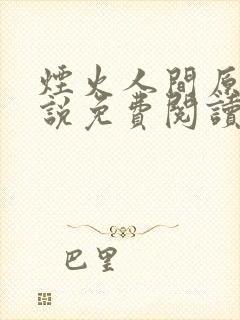 煙火人間原
說免費閱讀
巴里